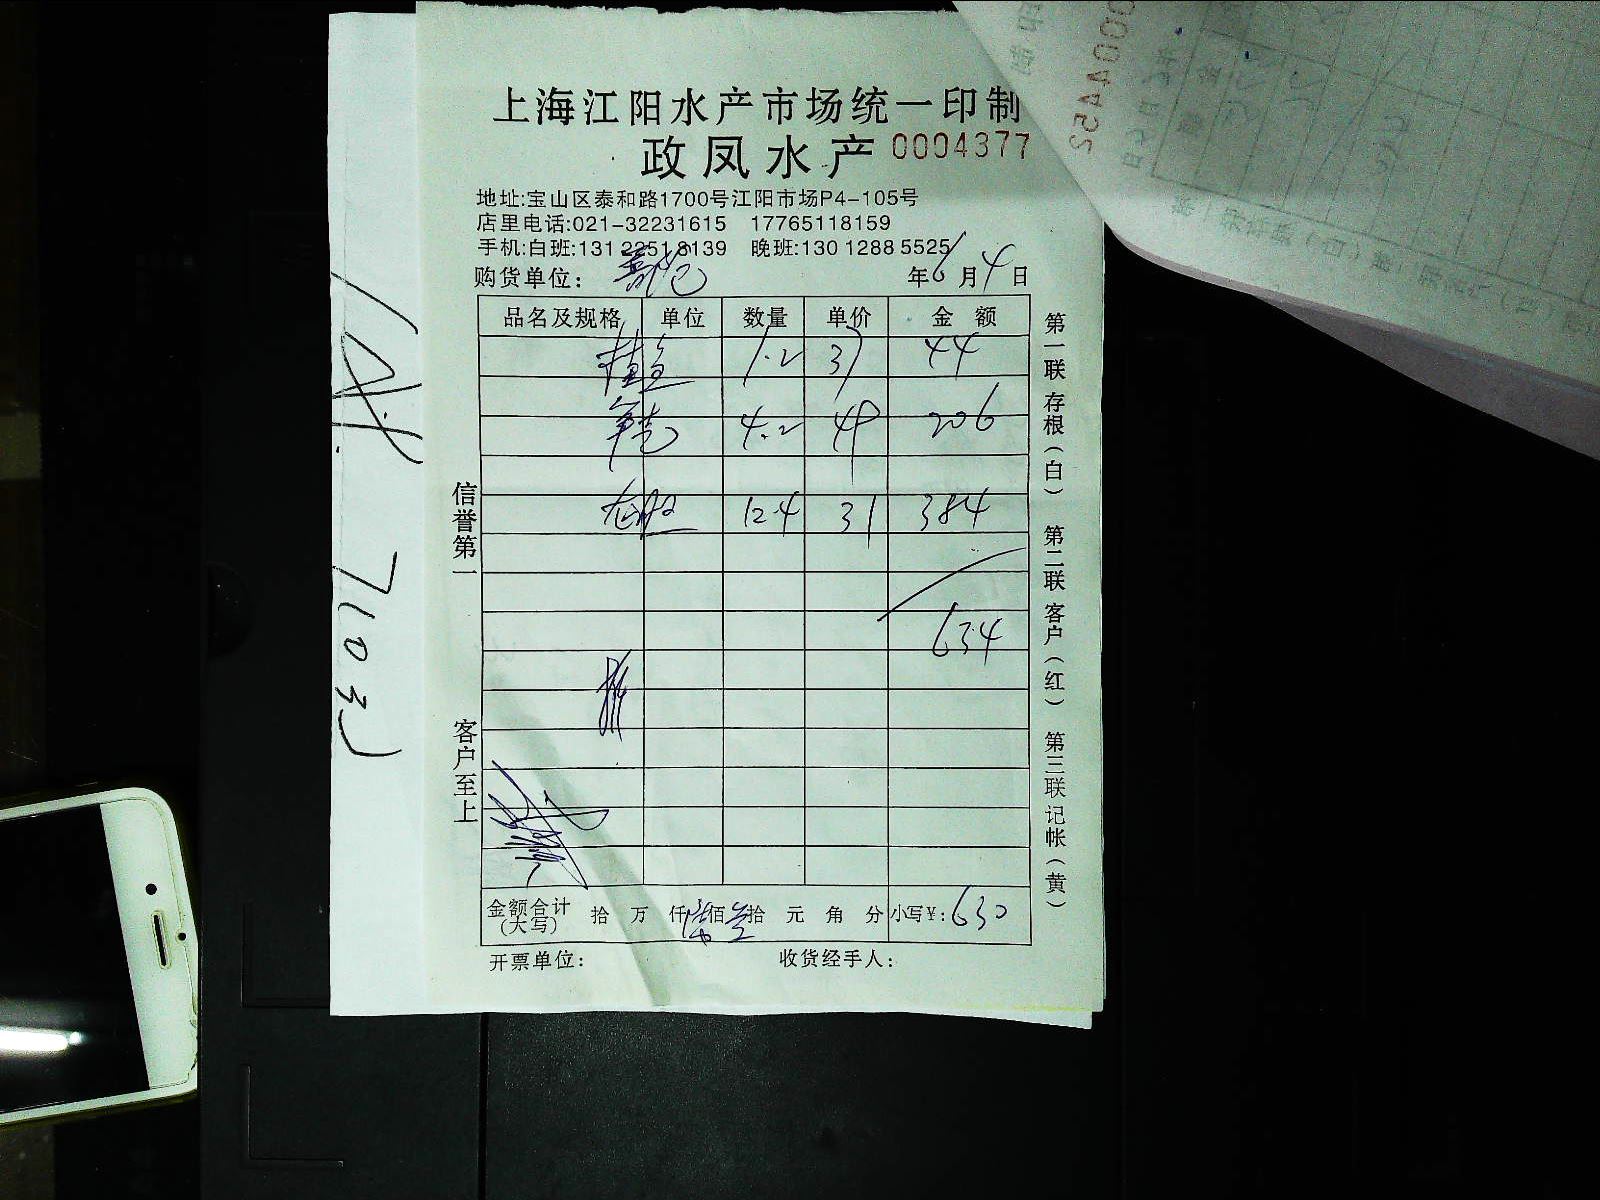 上海江阳水产市场统一印制
政凤水产 0004377
地址:宝山区泰和路1700号江阳市场P4-105号
店里电话:021-32231615 17765118159
手机:白班:131 2251 8139 晚班:130 1288 5525
购货单位: 年6月4日
品名及规格 单位 数量 单价 金额
桂鱼 1.2 37 44
4.2 49 206
12.4 31 384
634
金额合计(大写) 拾 万 仟 陆佰 叁拾 元 角 分 小写¥: 630
开票单位: 收货经手人:
信誉第一
客户至上
第一联 存根(白) 第二联 客户(红) 第三联 记帐(黄)
0004452